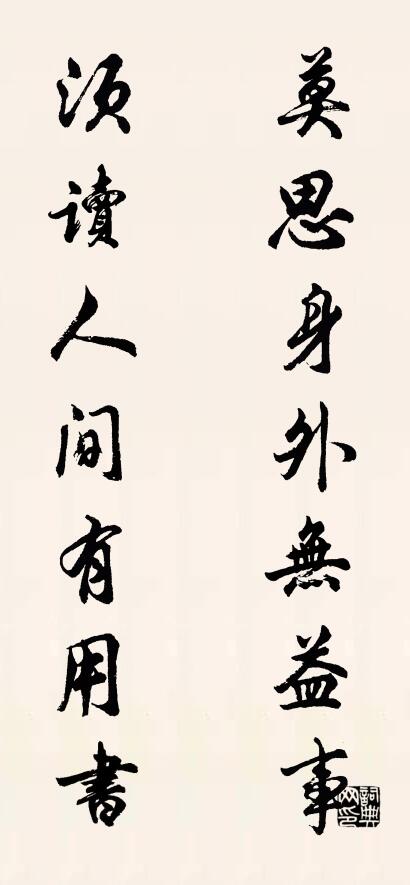 莫思身外無益事
須讀人間有用書
詞典網印